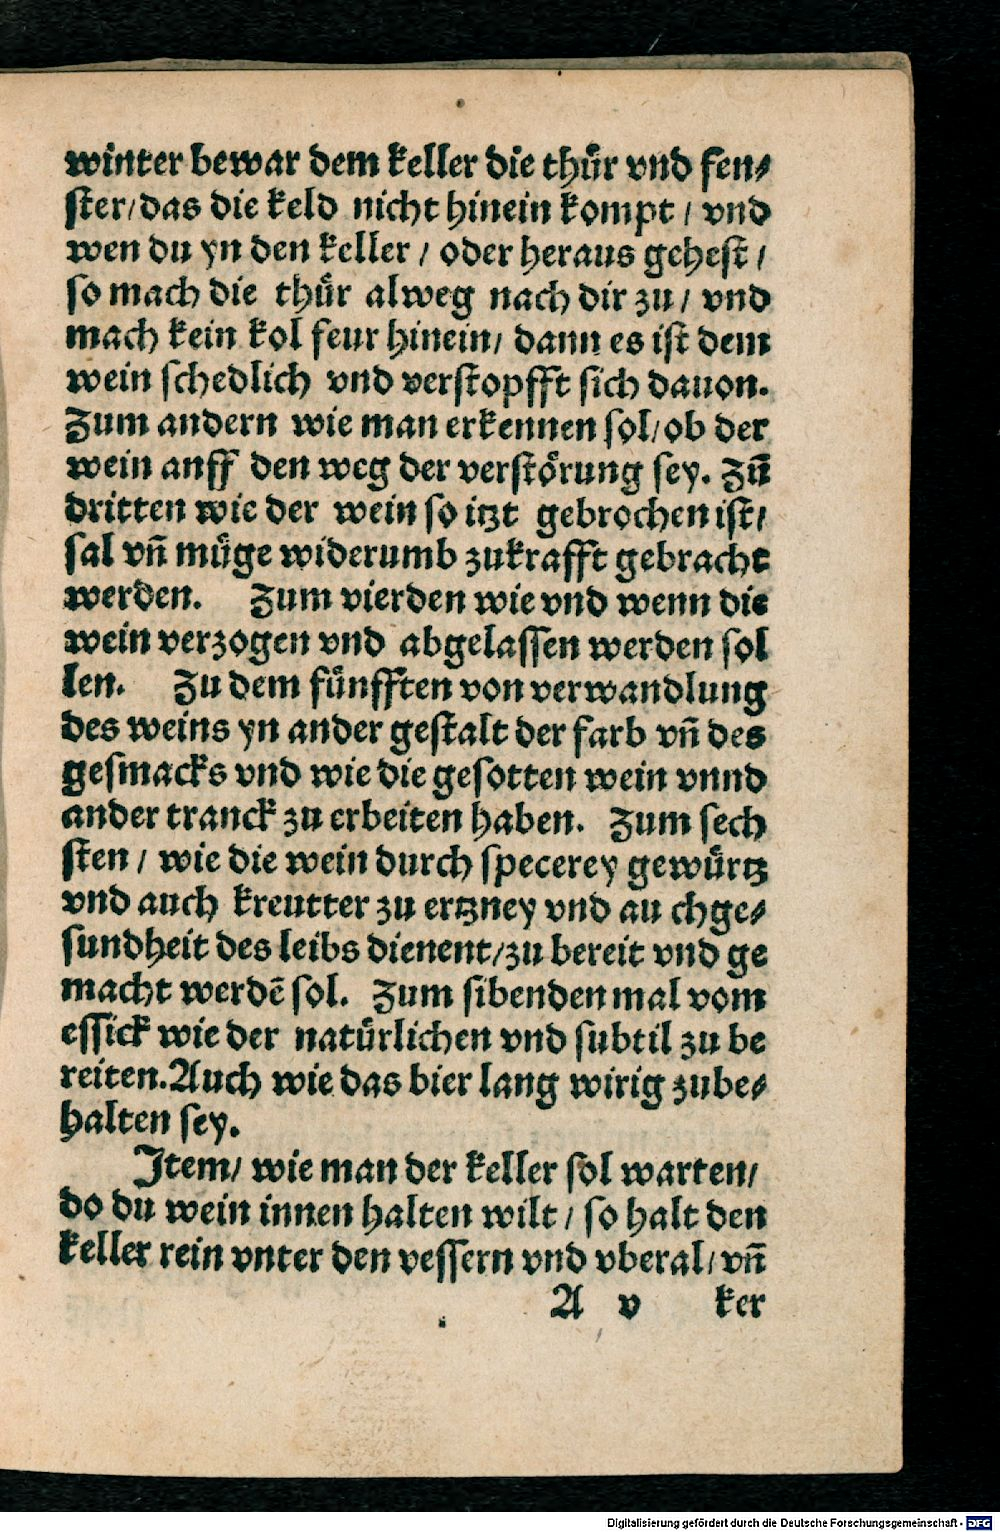 winter bewar dem keller die thuͤr vnd fen⸗
ster/das die keld nicht hinein kompt / vnd
wen du yn den keller / oder heraus gehest /
so mach die thuͤr alweg nach dir zu / vnd
mach kein kol feur hinein/ dann es ist dem
wein schedlich vnd verstopfft sich dauon.
Zum andern wie man erkennen sol/ob der
wein anff den weg der verstoͤrung sey. Zum̄
dritten wie der wein so itzt gebrochen ist/
sal vn̄ muͤge widerumb zukrafft gebracht
werden. Zum vierden wie vnd wenn die
wein verzogen vnd abgelassen werden sol
len. Zu dem fuͤnfften von verwandlung
des weins yn ander gestalt der farb vn̄ des
gesmacks vnd wie die gesotten wein vnnd
ander tranck zu erbeiten haben. Zum sech
sten / wie die wein durch specerey gewuͤrtz
vnd auch kreutter zu ertzney vnd au chge⸗
sundheit des leibs dienent/zu bereit vnd ge
macht werdē sol. Zum sibenden mal vom
essick wie der natuͤrlichen vnd subtil zu be
reiten.Auch wie das bier lang wirig zube⸗
halten sey.
Item/ wie man der keller sol warten/
do du wein innen halten wilt / so halt den
keller rein vnter den vessern vnd vberal/ vn̄
A v ker
Digitalisierung gefördert durch die Deutsche Forschungsgemeinschaft - DFG